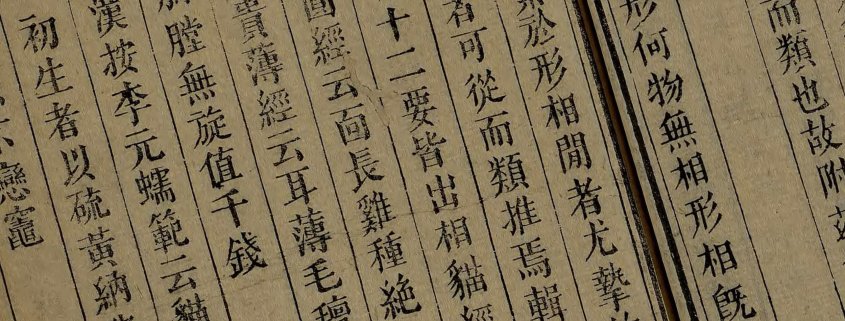 而類也故附茲
形何物無相形相旣
於形相閒者尤摯
者可從而類推焉輯
十二要皆出相貓經
圓經云面長雞種絶
貴薄經云耳薄毛氊
膛無旋值千錢
漢按李元蠕範云貓
初生者以硫黃納
戀竈